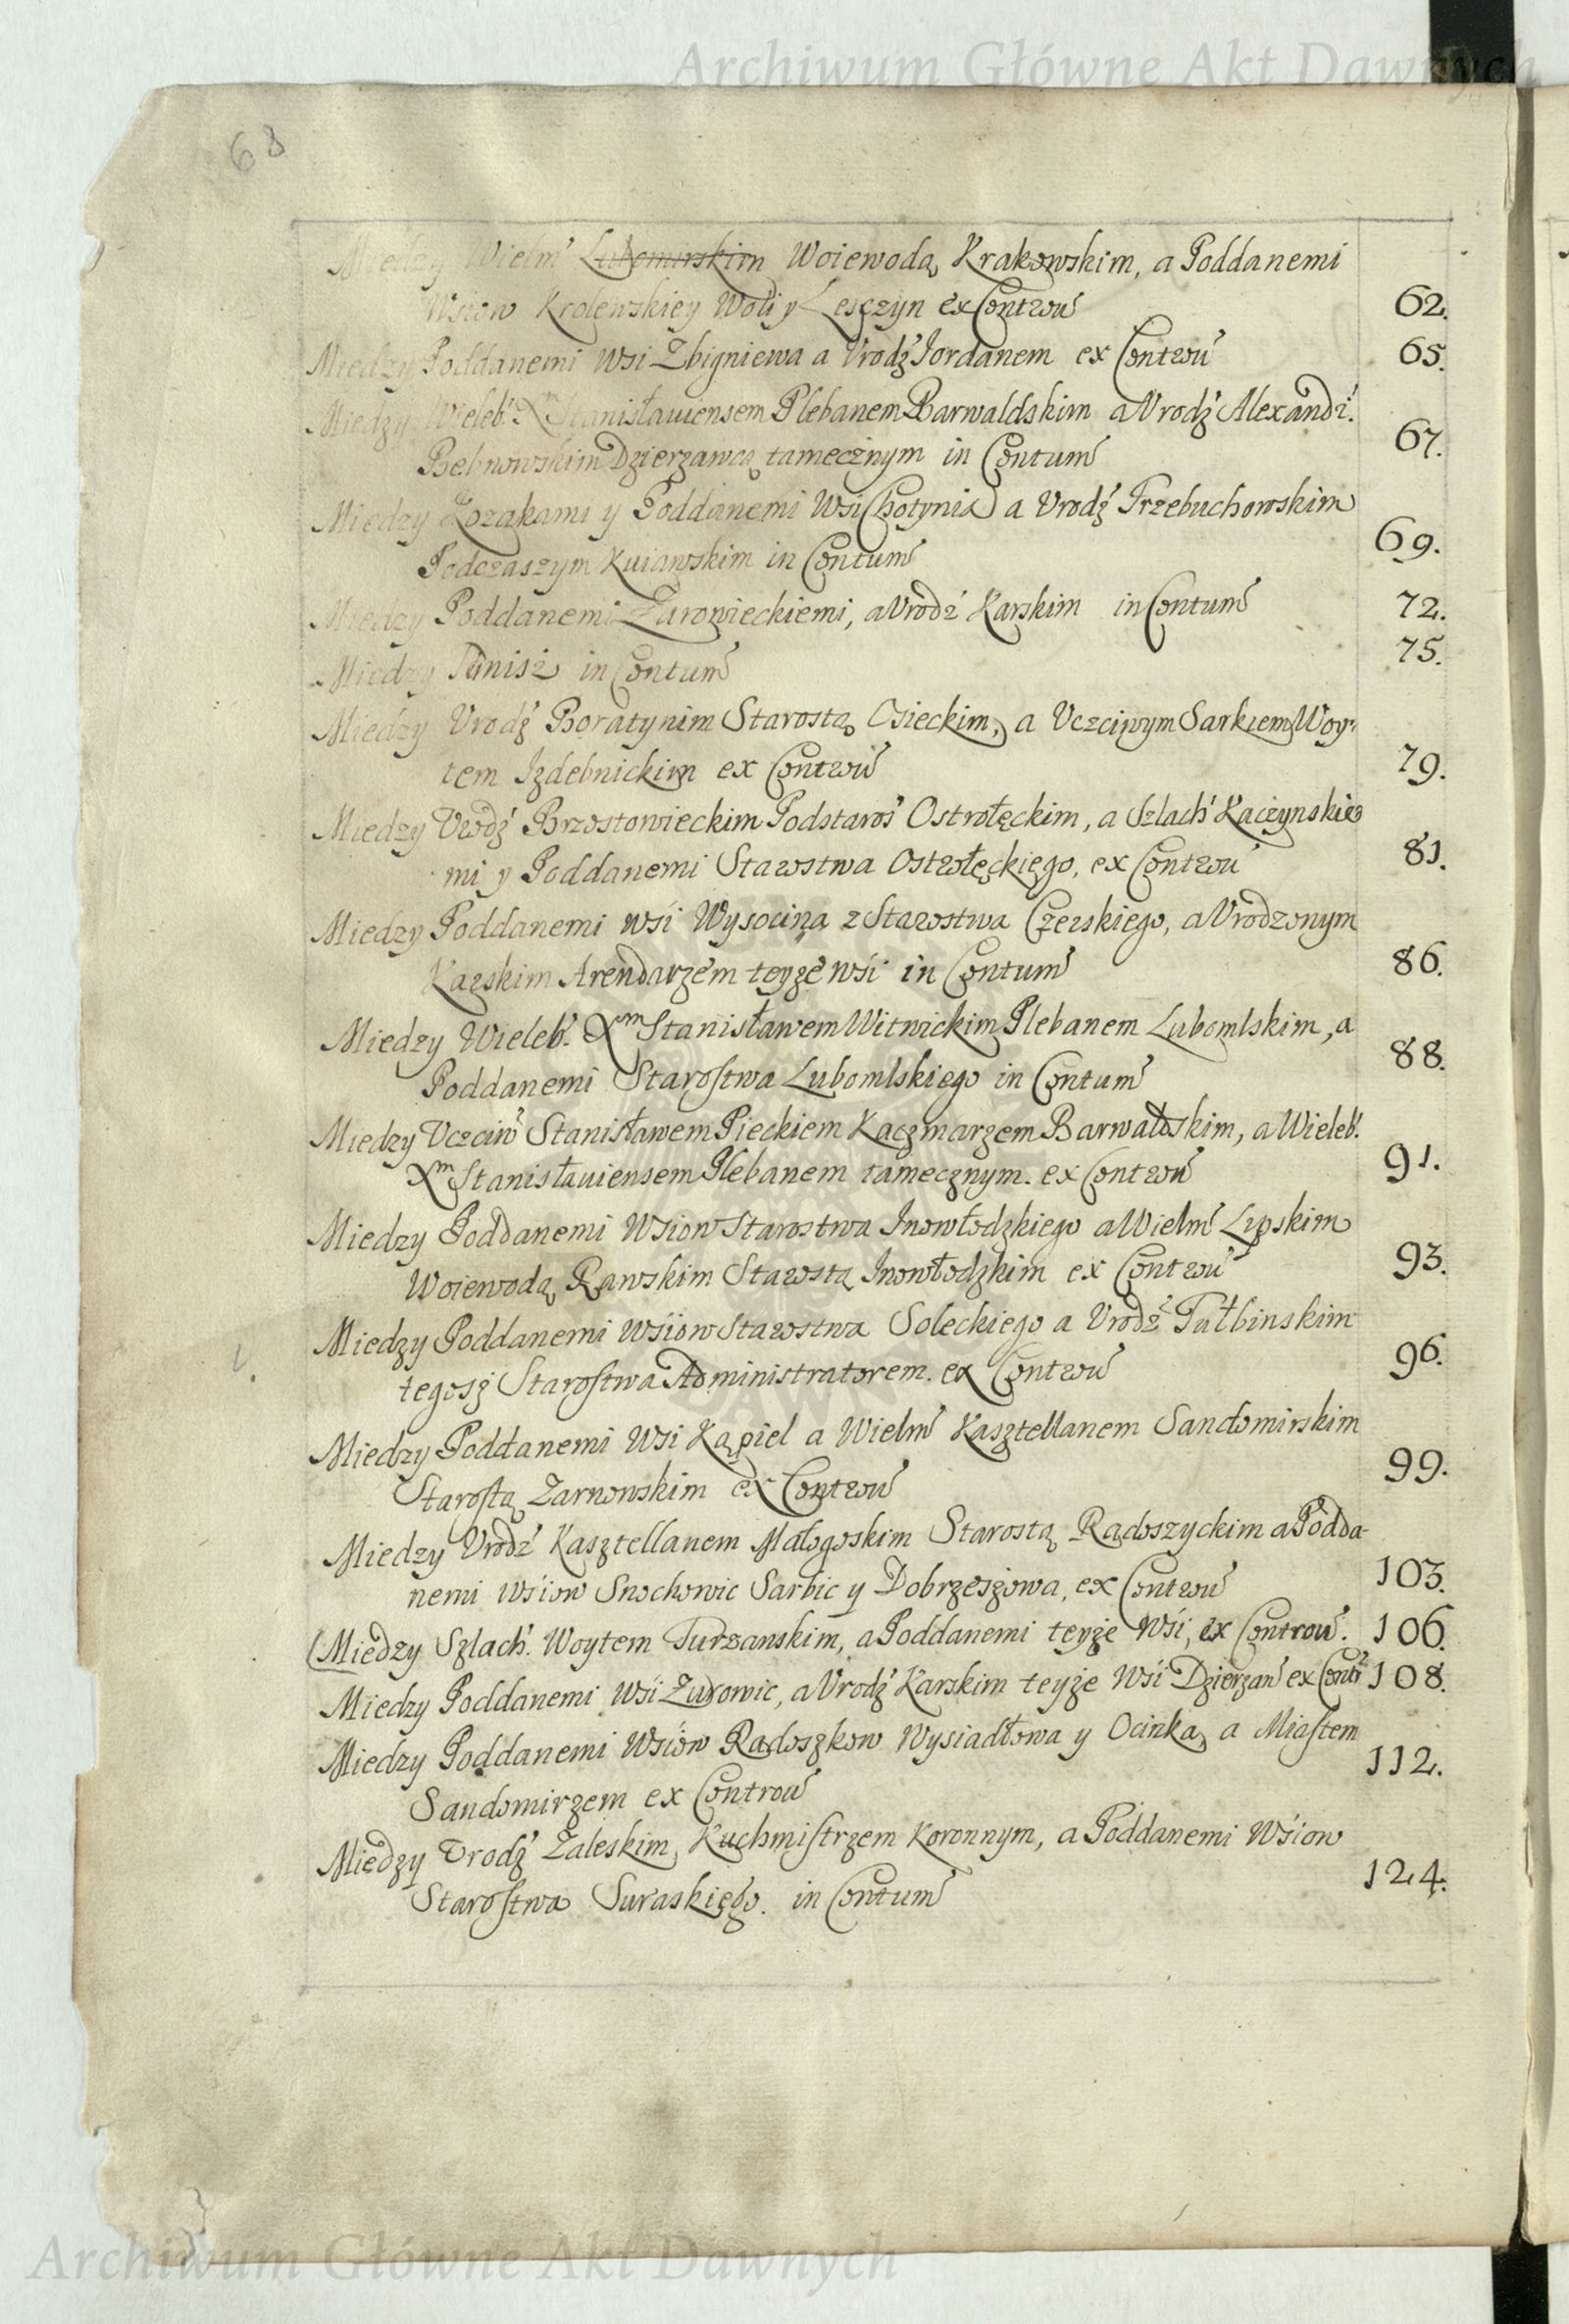 Archiwum Główne Akt Dawnych
68
Miedzy Wielm Lubomirskim Woiewodą Krakowskim, a Poddanemi
Wsiow Krolewskiey Woli y Lesczyn ex Controu 62.
Miedzy Poddanemi Wsi Zbigniewa a Vrodz Iordanem ex Controu 65.
Miedzy Wieleb. Xm Stanisławiensem Plebanem Barwaldskim a Vrodz Alexandr.
Dzierzawcą tamecznym in Contum 67.
Miedzy Kozakami y Poddanemi Wsi Chotynia a Vrodz Przebuchowskim
Podczaszym Kuiawskim in Contum 69.
Miedzy Poddanemi Zurowieckiemi, a Vrodz Karskim in Contum 72.
Miedzy in Contum 75.
Miedzy Vrodz Boratynim Starostą Osieckim, a Vczciwym Sarkiem Woy-
tem Izdebnickim ex Controu 79.
Miedzy Vrodz Brzostowieckim Podstaroś Ostrołęckim, a Szlach Kaczynskie
mi y Poddanemi Starostwa Ostrołęckiego, ex Controu 81.
Miedzy Poddanemi wsi Wysocina z Starostwa Czerskiego, a Vrodzonym
Karskim Arendarzem teyze wsi in Contum 86.
Miedzy Wieleb. Xm Stanisławem Witwickim Plebanem Lubomlskim, a
Poddanemi Starostwa Lubomlskiego in Contum 88.
Miedzy Vczciw Stanisławem Pieckiem Kaczmarzem Barwałdskim, a Wieleb.
Xm Stanisławiensem Plebanem tamecznym. ex Controu 91.
Miedzy Poddanemi Wsiow Starostwa Inowłodzkiego a Wielm Lipskim
Woiewodą Rawskim Starostą Inowłodzkim ex Controu 93.
Miedzy Poddanemi Wsiow Starostwa Soleckiego a Vrodz Tułbinskim
tegosz Starostwa Administratorem. ex Controu 96.
Miedzy Poddanemi Wsi Kąpiel a Wielm Kasztellanem Sandomirskim
Starostą Zarnowskim ex Controu 99.
Miedzy Vrodz Kasztellanem Małogoskim Starostą Radoszyckim a Podda-
nemi Wsiow Snochowic Sarbic y Dobrzeszowa, ex Controu 103.
Miedzy Szlach. Woytem Turzanskim, a Poddanemi teyze Wsi, ex Controu. 106.
Miedzy Poddanemi Wsi Zurowic, a Vrodz Karskim teyze Wsi Dzierzaw ex Contr 108.
Miedzy Poddanemi Wsiow Radoszkow Wysiadłowa y Ocinka, a Miastem
Sandomirzem ex Controu 112.
Miedzy Vrodz Zaleskim, Kuchmistrzem Koronnym, a Poddanemi Wsiow
Starostwa Suraskiego. in Contum 124.
Archiwum Główne Akt Dawnych